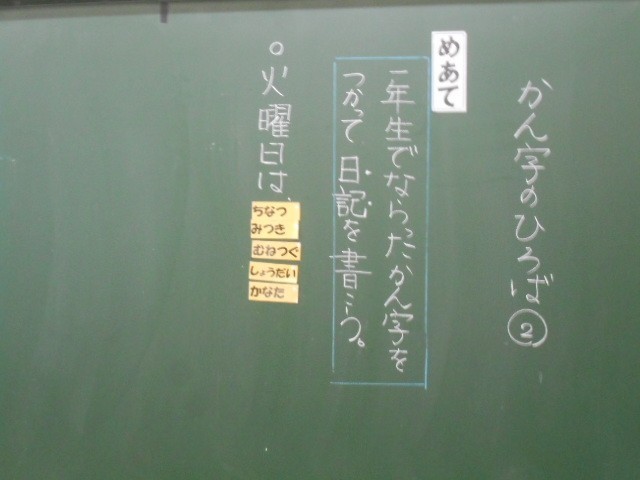 かん字のひろば②
めあて
一年生でならったかん字を
つかって日記を書こう。
○火曜日は、
ちなつ
みつき
むねつぐ
しょうだい
かなた